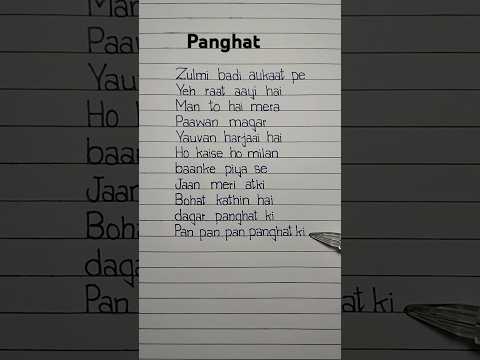 Panghat
Zulmi badi aukaat pe
Yeh raat aayi hai
Man to hai mera
Paawan magar
Yauvan harjaai hai
Ho kaise ho milan
baanke piya se
Jaan meri atki
Bohat kathin hai
dagar panghat ki
Pan pan pan panghat ki